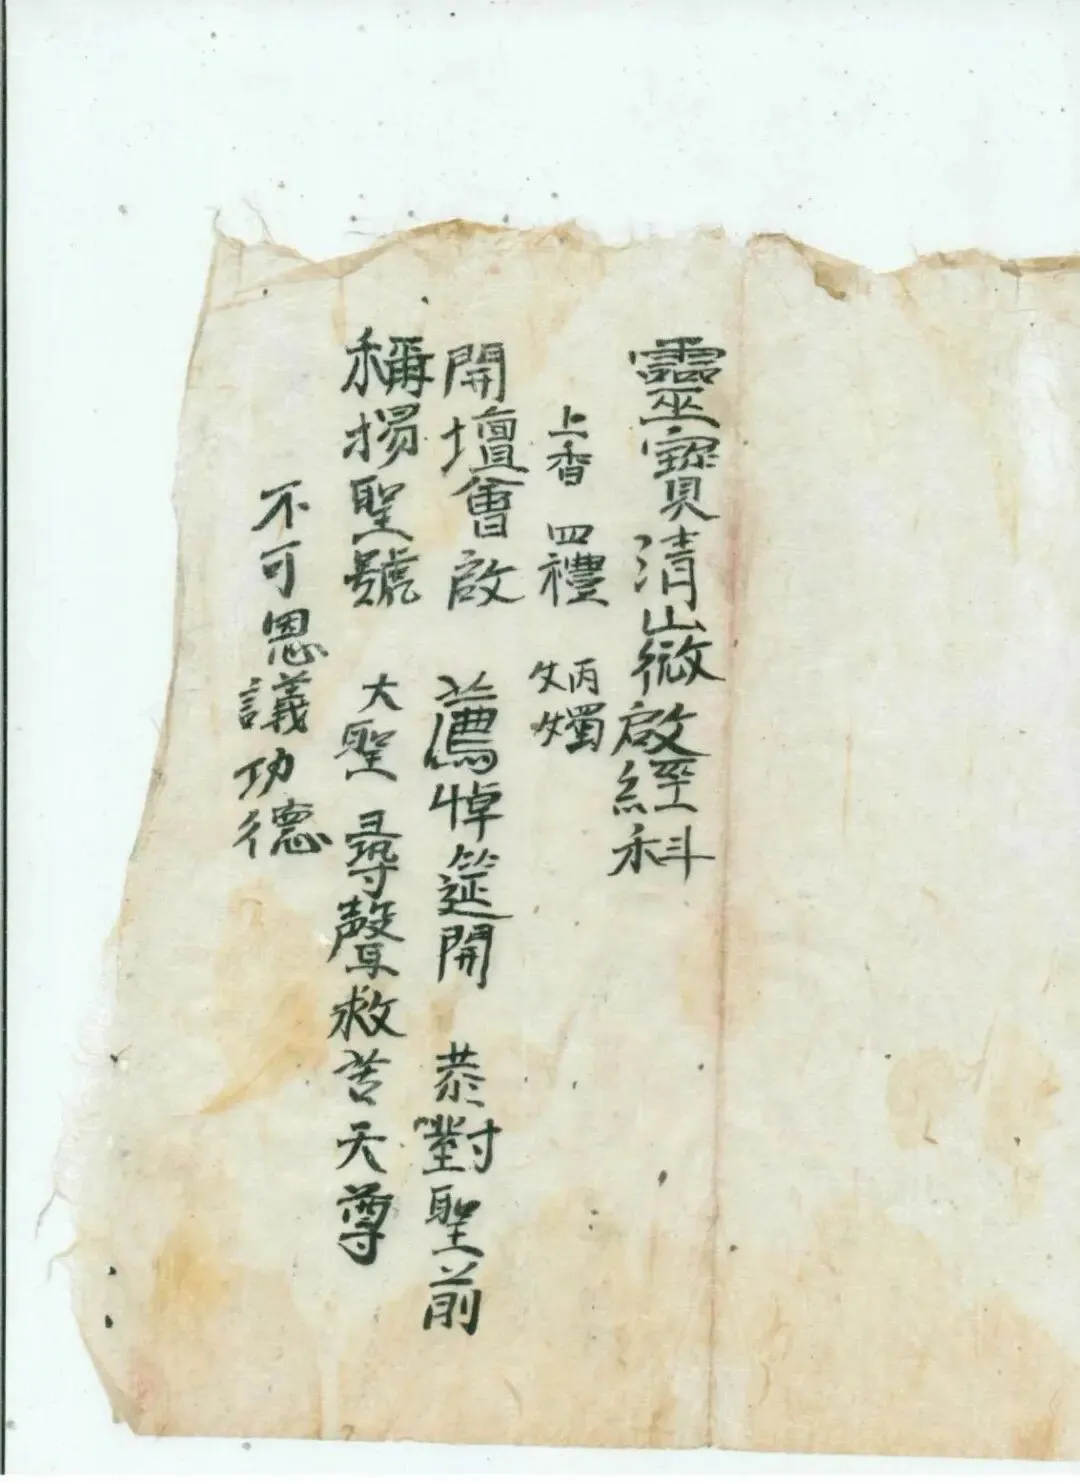 靈寶清微啟經科
上香 四禮 炳燭
開壇會啟 薦悼筵開 恭對聖前
稱揚聖號 大聖 尋聲救苦天尊
不可思議功德